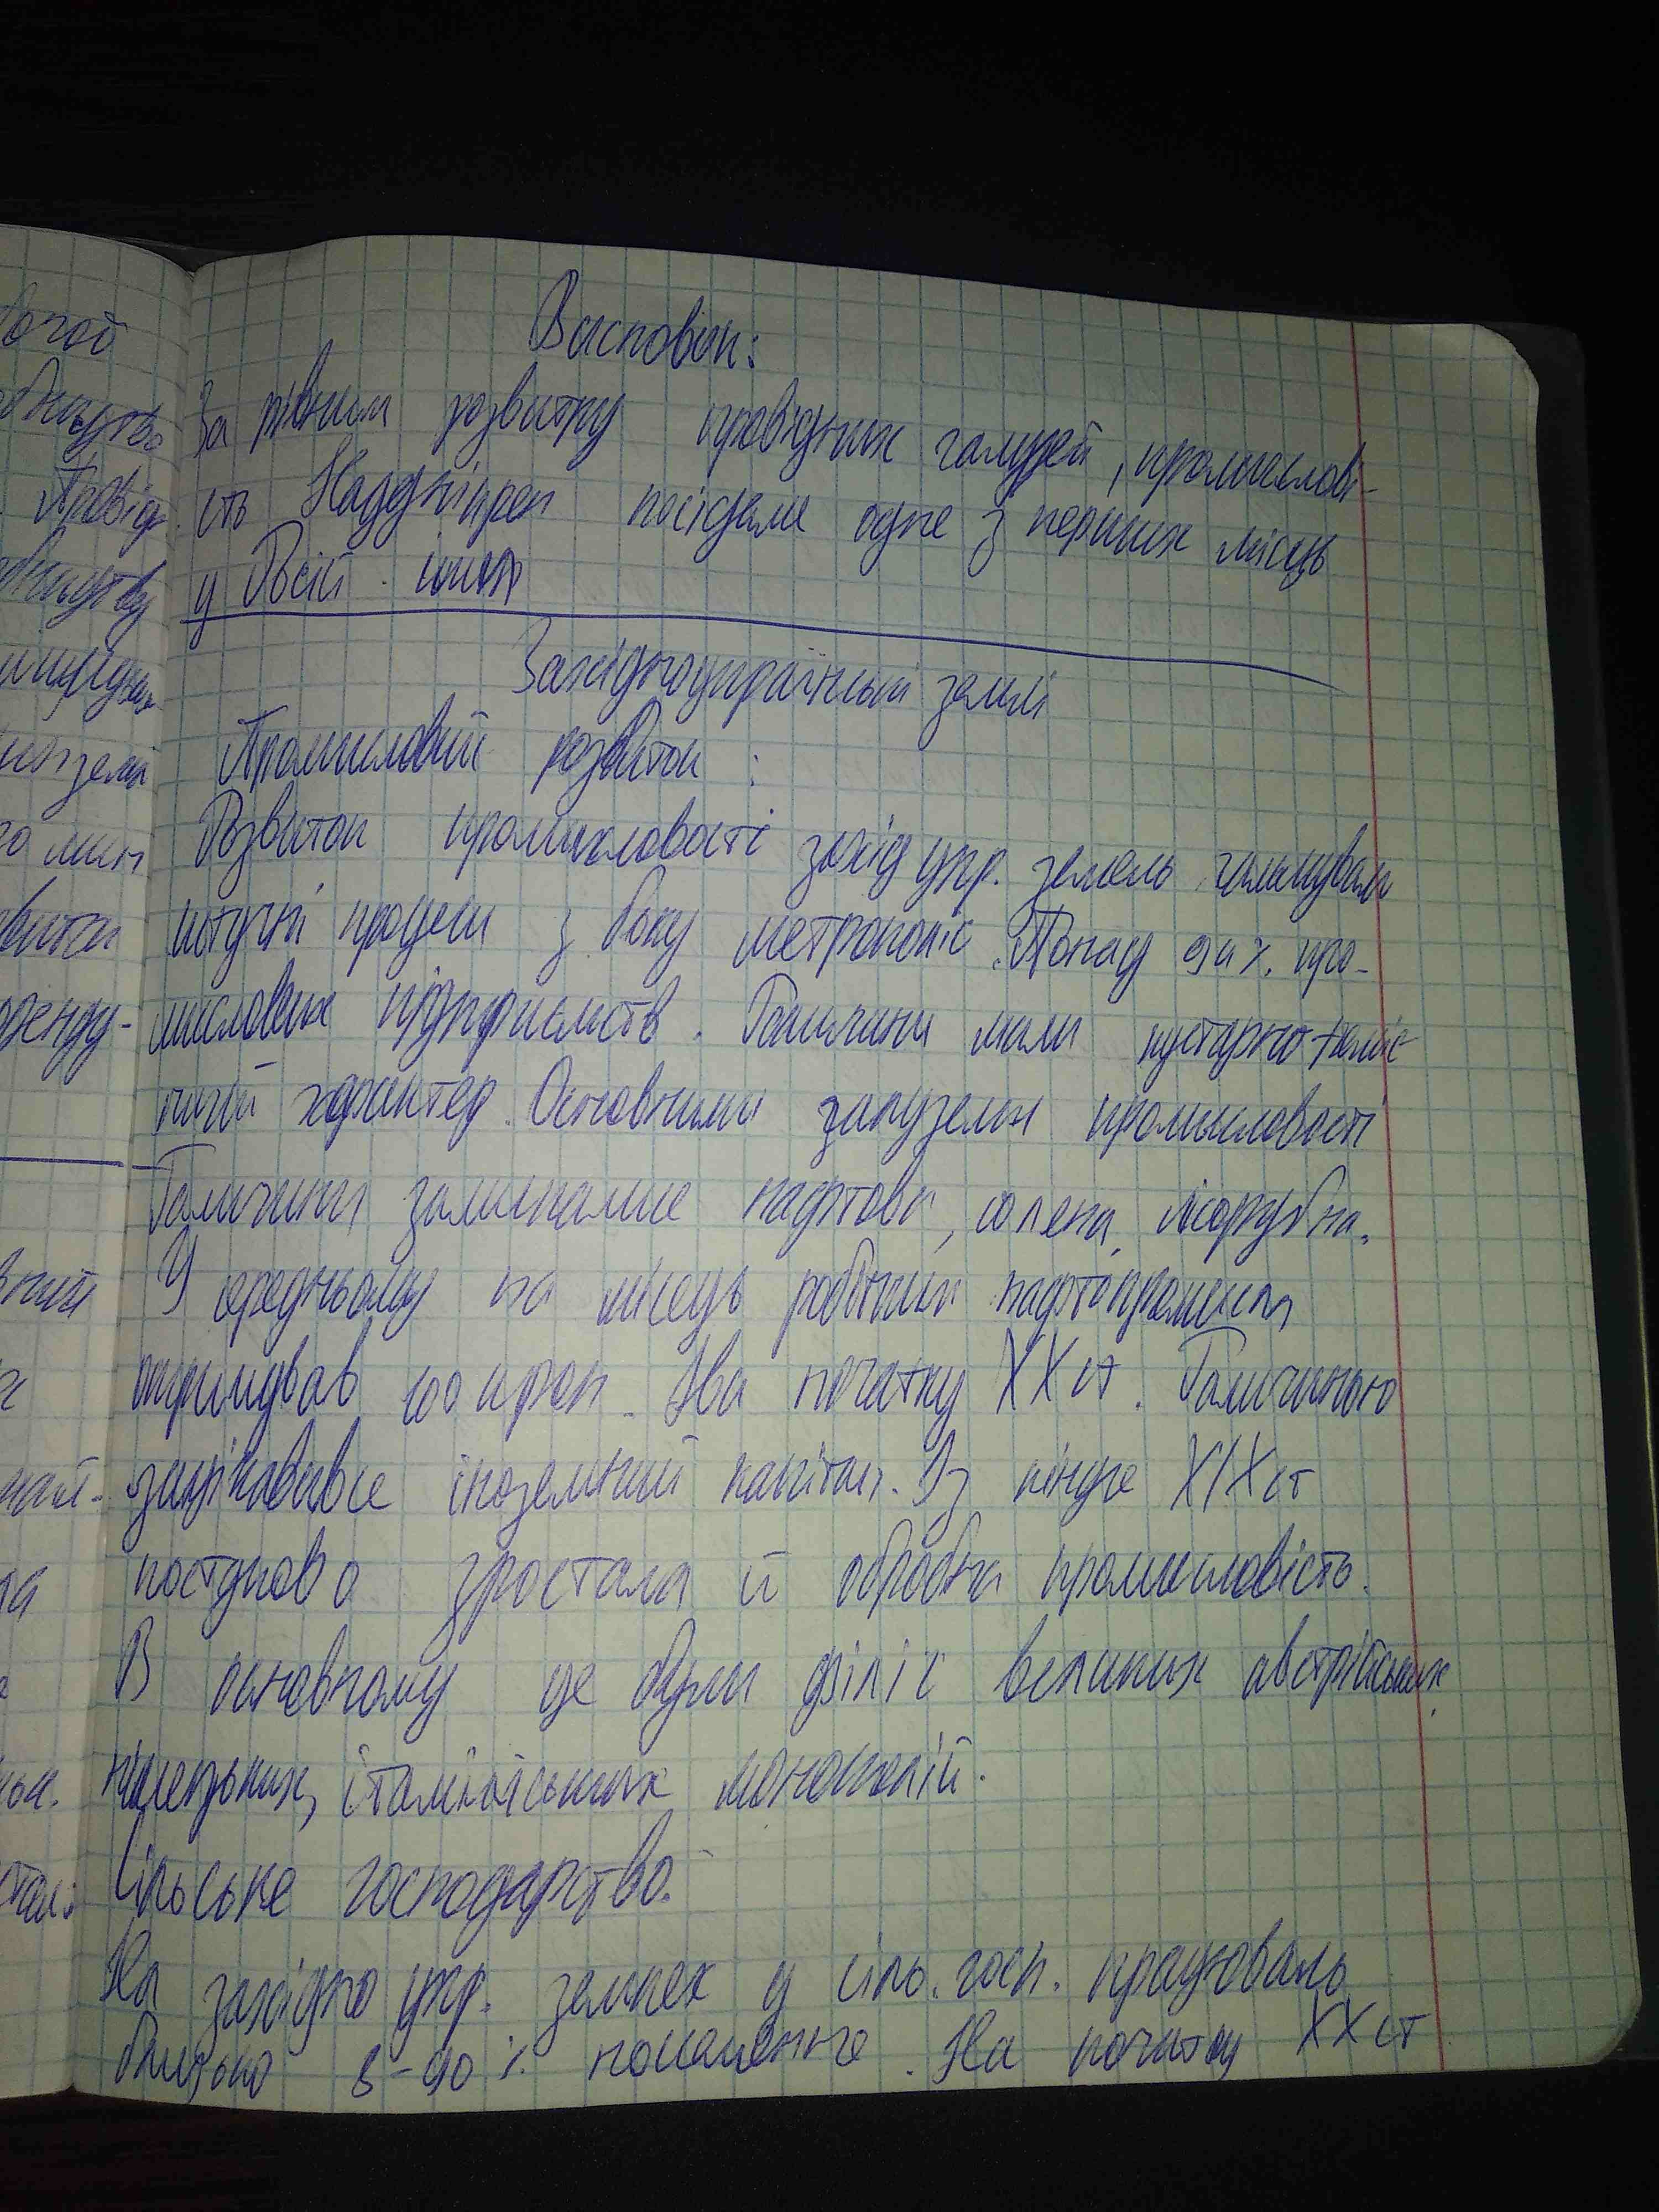 Висновок:
За рівнем розвитку провідних галузей, промислові-
сть Наддніпрян посідала одне з перших місць
у Росій. імпер
Західноукраїнські землі
Промисловий розвиток :
Розвиток промисловості захід укр. земель гальмували
штучні процеси з боку метрополіє. Понад 94%. про-
мислових підприємств. Галичини мали кустарно-реміс
ничий характер. Основними галузями промисловості
Галичини залишалися нафтова, соляна, лісорубна.
У середньому на місець робітник нафтопромисла
отримував 100 крон. На початку XXст. Галичиною
зацікавився іноземний капітал. Із кінця XIXст
поступово зростала й обробна промисловість.
В основному це були філіє великих австрійських,
німецьких, італійських монополій.
Сільське господарство.
На західно укр. землях у сіль. госп. працювань
близько 8-90%. населення. На початку XXст